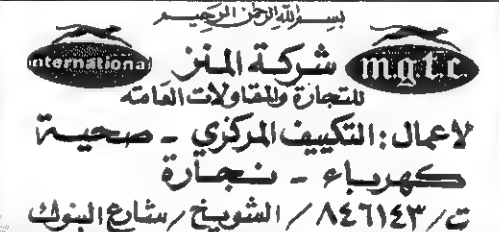 بسم الله الرحمن الرحيم
international شركة المنز m.g.t.c.
للتجارة والمقاولات العامة
لاعمال : التكييف المركزي - صحية
كهرباء - نجارة
ت / ٨٤٦١٤٣ / الشويخ / شارع البنوك